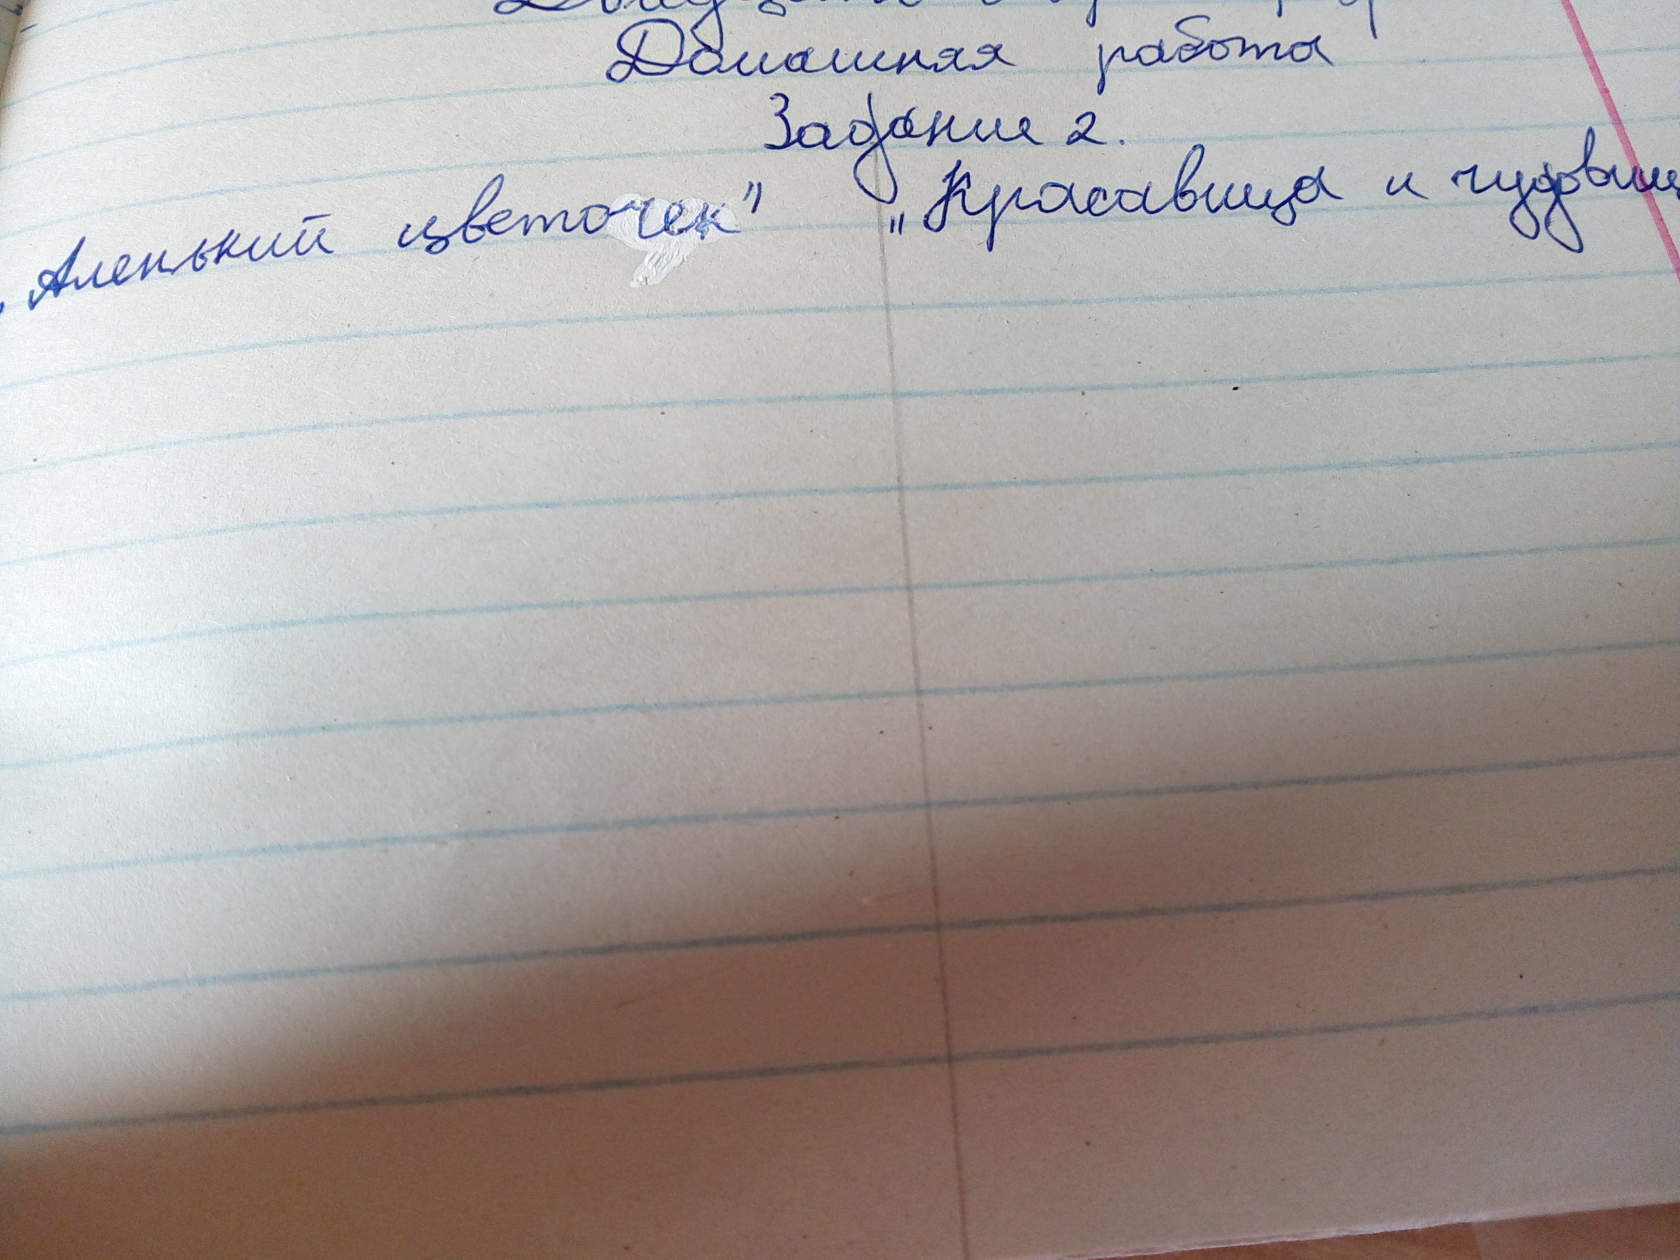 Домашняя работа
Задание 2.
„Аленький цветочек" „Красавица и чудовищ